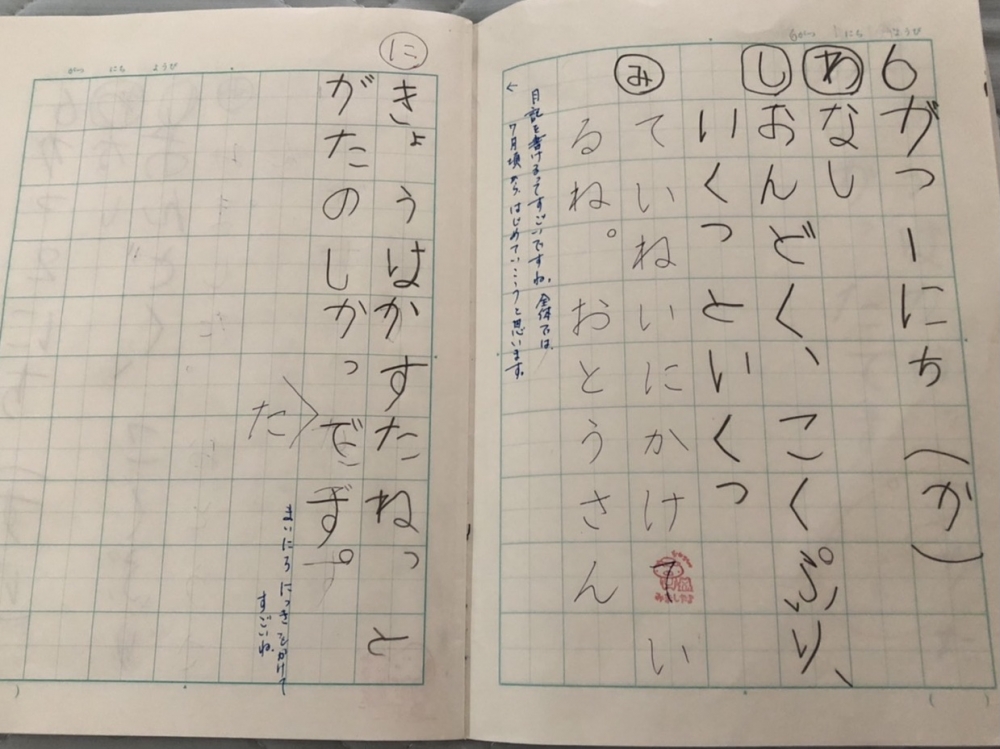 6がつ にち ようび
6がつ一にち(か)
わ なし
し おんどく、こくぷり、
いくつといくつ
み ていねいにかけてい
るね。おとうさん
日記を書けるってすごいですね。全体では、
7月頃から、はじめていこうと思います。
←
がつ にち ようび
に きょうはかすたねっと
がたのしかっです。
た
まいにち にっきをかけて
すごいね